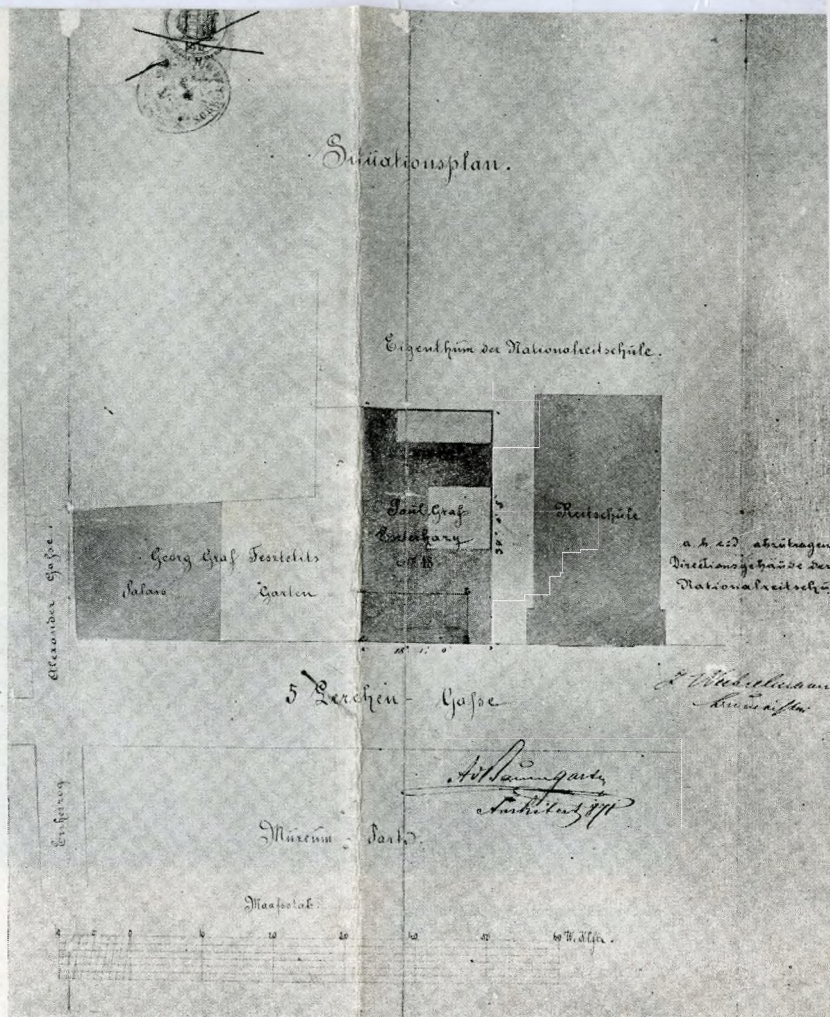 Situationsplan.
Eigenthum der Nationalreitschule.
Paul Graf
Esterhazy
Reitschule
a. b. c. d. abzutragen
Directionsgebäude der
Nationalreitschu
Georg Graf Festetits
Palais Garten
Alexander Gasse.
18° 1' 0"
5 Lerchen - Gasse
Baumeister
Erherzog
A v Baumgarten
Architect 871
Muzeum - Park.
Maasstab.
0 10 20 30 40 50 60 W. Klftr.